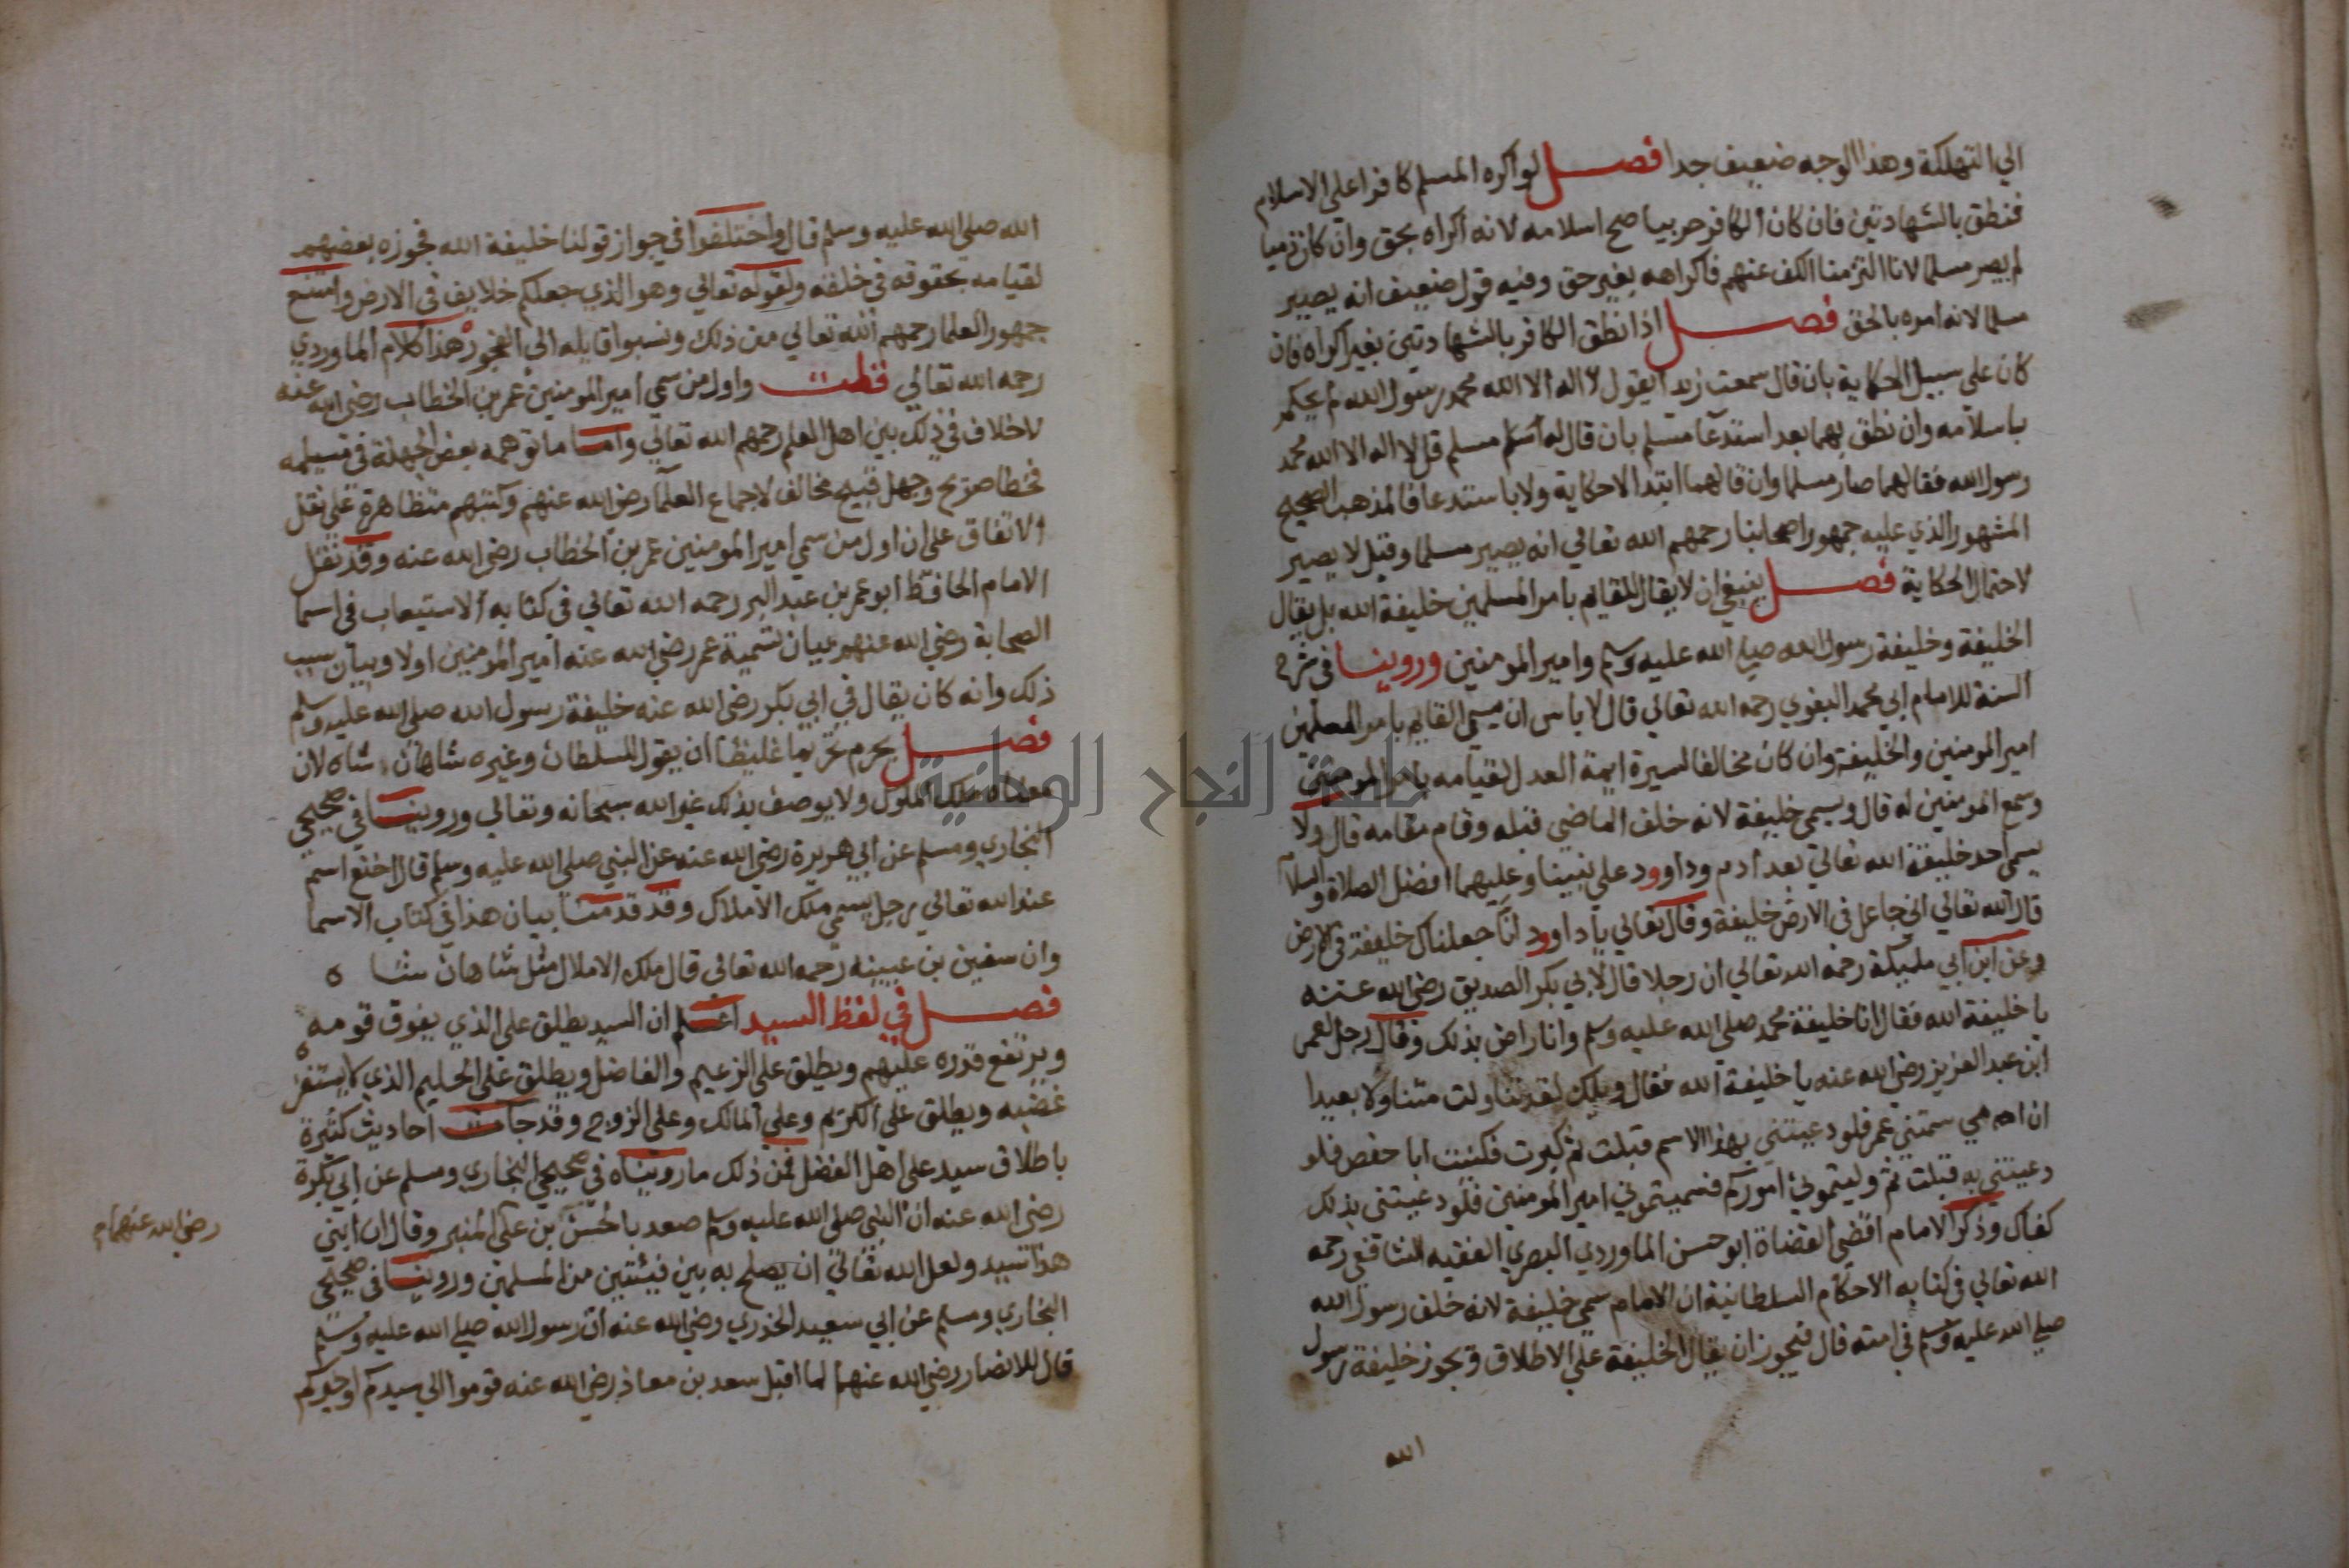 الي التهلكة وهذا الوجه ضعيف جدا فصل لو اكره المسلم كافرا على الاسلام
فنطق بالشهادتين فان كان الكافر حربيا صح اسلامه لانه اكراه بحق وان كان ذميا
لم يصر مسلما لانا التزمنا الكف عنهم فاكراهه بغير حق وفيه قول ضعيف انه يصير
مسلما لانه امره بالحق فصل اذا نطق الكافر بالشهادتين بغير اكراه فان
كان على سبيل الحكاية بان قال سمعت زيدا يقول لا اله الا الله محمد رسول الله لم يحكم
باسلامه وان نطق بهما بعد استدعا مسلم بان قال له اسلم مسلم قل لا اله الا الله محمد
رسول الله فقالهما صار مسلما وان قالهما ابتدا لاحكاية ولا باستدعا فالمذهب الصحيح
المشهور الذي عليه جمهور اصحابنا رحمهم الله تعالي انه يصير مسلما وقيل لا يصير
لاحتمال الحكاية فصل ينبغي ان لا يقال للقائم بامر المسلمين خليفة الله بل يقال
الخليفة وخليفة رسول الله صلي الله عليه وسلم وامير المومنين وروينا في شرح
السنة للامام ابي محمد البغوي رحمه الله تعالي قال لا باس ان يسمي القايم بامر المسلمين
امير المومنين والخليفة وان كان مخالفا لسيرة ايمة العدل لقيامه بامر المومنين
وسمع المومنين له قال ويسمى خليفة لانه خلف الماضي قبله وقام مقامه قال ولا
يسمى احد خليفة الله تعالي بعد ادم وداوود علي نبينا وعليهما افضل الصلاة والسلام
قال الله تعالي اني جاعل في الارض خليفة وقال تعالي يا داوود انا جعلناك خليفة في الارض
وعن ابن ابي مليكة رحمه الله تعالي ان رجلا قال لابي بكر الصديق رضي الله عنه
يا خليفة الله فقال انا خليفة محمد صلي الله عليه وسلم وانا راض بذلك وقال رجل لعمر
ابن عبد العزيز رضي الله عنه يا خليفة الله فقال ويلك لقد تناولت متناولا بعيدا
ان امي سمتني عمر فلو دعيتني بهذا الاسم قبلت ثم كبرت فكنيت ابا حفص فلو
دعيتني به قبلت ثم وليتموني اموركم فسميتموني امير المومنين فلو دعيتني بذلك
كفاك وذكر الامام اقضي القضاة ابو حسن الماوردي البصري الفقيه الشافعي رحمه
الله تعالي في كتابه الاحكام السلطانية ان الامام سمي خليفة لانه خلف رسول الله
صلي الله عليه وسلم في امته قال فيجوز ان يقال الخليفة علي الاطلاق ويجوز خليفة رسول
الله
الله صلي الله عليه وسلم قال واختلفوا في جواز قولنا خليفة الله فجوزه بعضهم
لقيامه بحقوقه في خلقه ولقوله تعالي وهو الذي جعلكم خلايف في الارض وامتنع
جمهور العلما رحمهم الله تعالي من ذلك ونسبوا قايله الي الفجور هذا كلام الماوردي
رحمه الله تعالي قلت واول من سمي امير المومنين عمر بن الخطاب رضي الله عنه
لاخلاف في ذلك بين اهل العلم رحمهم الله تعالي واما ما توهمه بعض الجهلة في مسيلمه
فخطا صريح وجهل قبيح مخالف لاجماع العلما رضي الله عنهم وكتبهم متظاهرة علي نقل
الاتفاق على ان اول من سمي امير المومنين عمر بن الخطاب رضي الله عنه وقد نقل
الامام الحافظ ابو عمر بن عبد البر رحمه الله تعالي في كتابه الاستيعاب في اسما
الصحابة رضي الله عنهم بيان تسمية عمر رضي الله عنه امير المومنين اولا وبيان سبب
ذلك وانه كان يقال في ابي بكر رضي الله عنه خليفة رسول الله صلى الله عليه وسلم
فصل يحرم تحريما غليظا ان يقول للسلطان وغيره شاهان شاه لان
معناه ملك الملوك ولا يوصف بذلك غير الله سبحانه وتعالي وروينا في صحيحي
البخاري ومسلم عن ابي هريرة رضي الله عنه عن النبي صلى الله عليه وسلم قال اخنع اسم
عند الله تعالي رجل يسمي ملك الاملاك وقد قدمنا بيان هذا في كتاب الاسما
وان سفين بن عيينه رحمه الله تعالى قال ملك الاملاك مثل شاهان شا ه
فصل في لفظ السيد اعلم ان السيد يطلق على الذي يفوق قومه
ويرتفع قدره عليهم ويطلق على الزعيم والفاضل ويطلق على الحليم الذي لا يستفزه
غضبه ويطلق على الكريم وعلي المالك وعلى الزوج وقد جات احاديث كثيرة
باطلاق سيد على اهل الفضل فمن ذلك ما رويناه في صحيحي البخاري ومسلم عن ابي بكرة
رضي الله عنه ان النبي صلي الله عليه وسلم صعد بالحسن بن علي المنبر وقال ان ابني
رضي الله عنهما
هذا سيد ولعل الله تعالي ان يصلح به بين فيئتين من المسلمين وروينا في صحيحي
البخاري ومسلم عن ابي سعيد الخدري رضي الله عنه ان رسول الله صلي الله عليه وسلم
قال للانصار رضي الله عنهم لما اقبل سعد بن معاذ رضي الله عنه قوموا الي سيدكم او خيركم
جامعة النجاح الوطنية